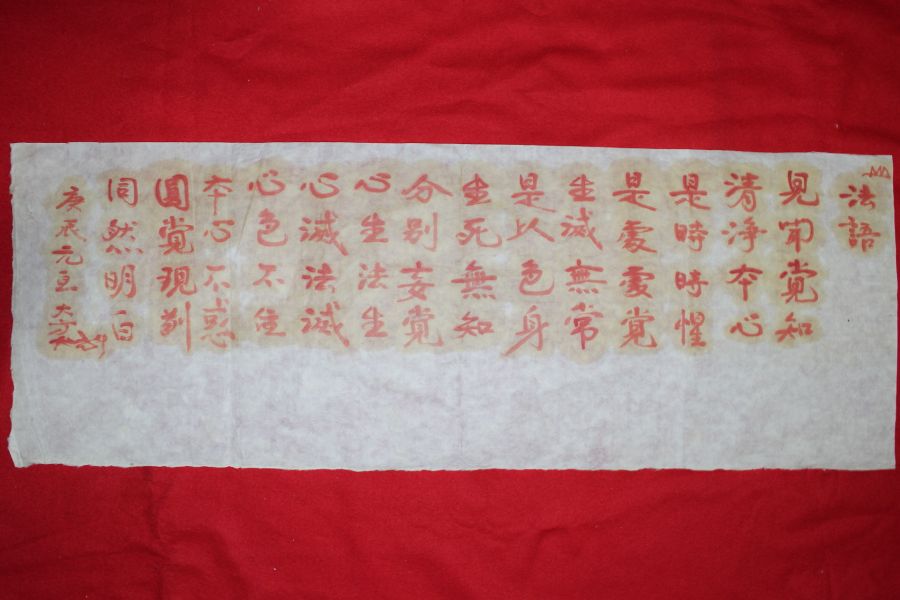 法語
見聞覚知
清浄本心
是時時惺
是處處覚
生滅無常
是以色身
生死無知
分別妄覚
心生法生
心滅法滅
心色不住
本心不惑
圓覚現前
同然明白
庚辰元